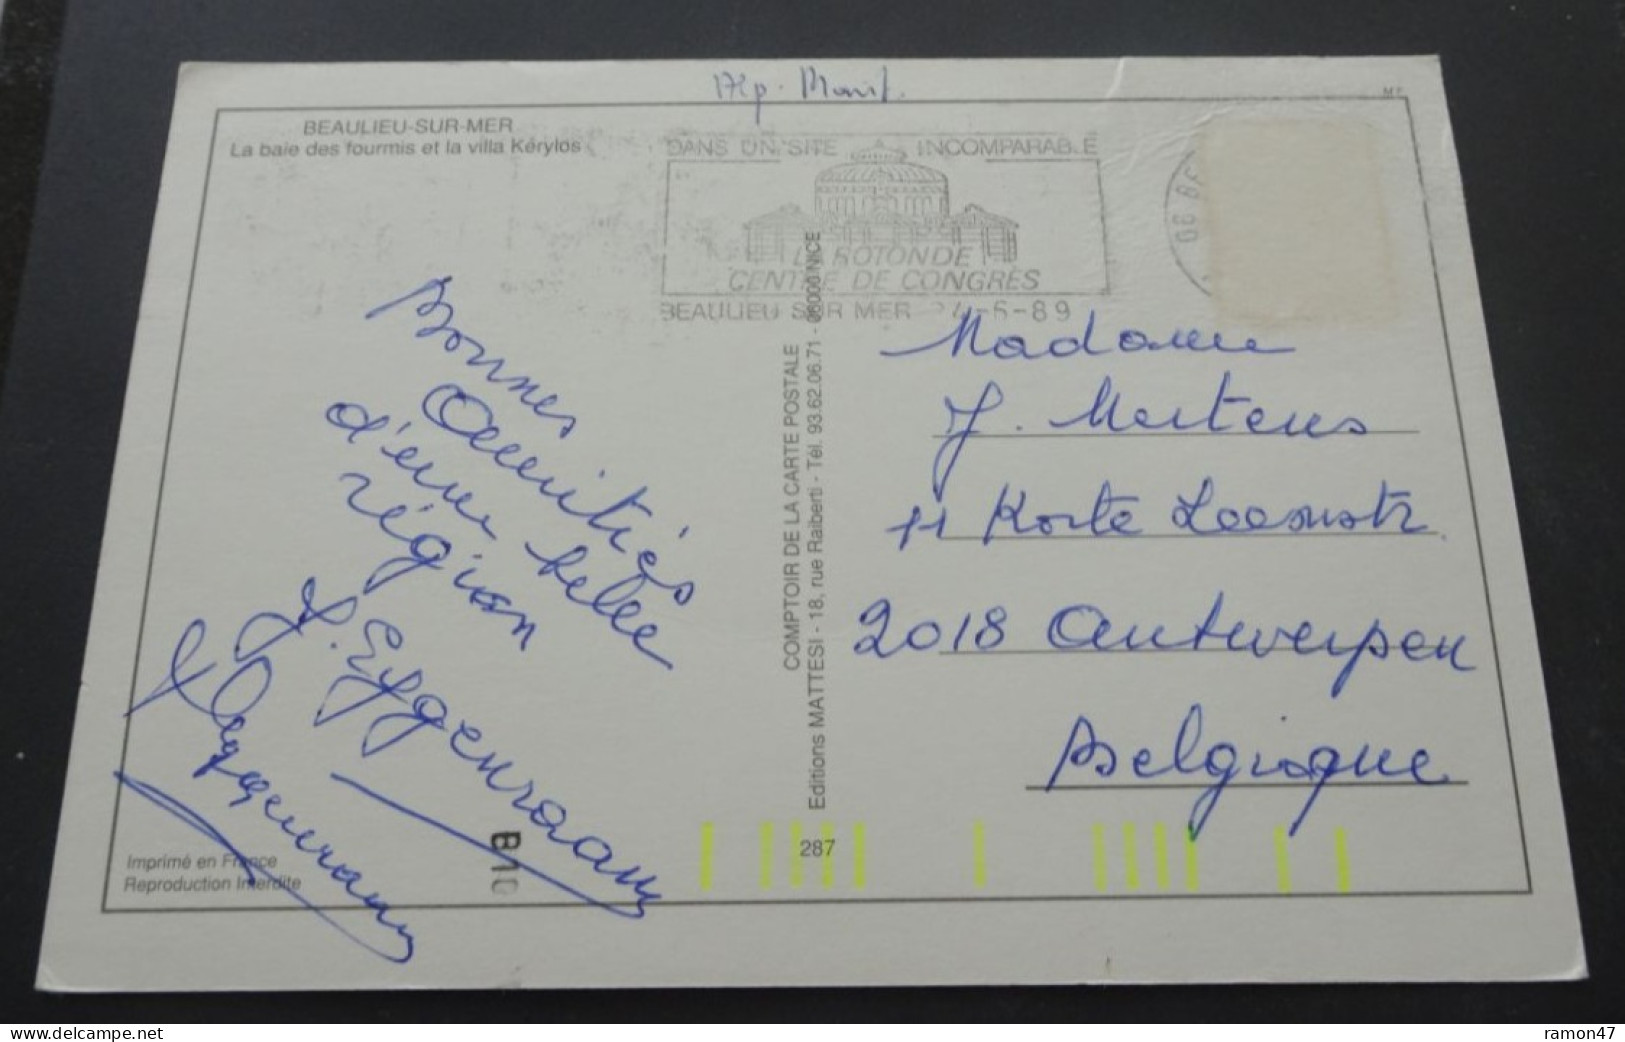 BEAULIEU-SUR-MER
La baie des fourmis et la villa Kérylos
DANS UN SITE INCOMPARABLE
LA ROTONDE
CENTRE DE CONGRÈS
BEAULIEU SUR MER 24-5-89
Bonnes
Amitiés
d'une belle
région
J. Eggenraam
Eggenraam
COMPTOIR DE LA CARTE POSTALE
Editions MATTESI - 18, rue Raiberti - Tél. 93.62.06.71 - 06000 NICE
Madame
J. Mertens
11 Korte Loosustr.
2018 Antwerpen
Belgique
287
B10
Imprimé en France
Reproduction Interdite
www.delcampe.net
ramon47